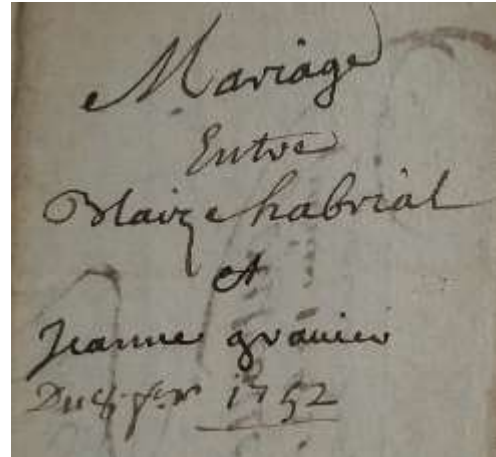 Mariage
Entre
Blaize Chabrial
et
Jeanne granier
1752